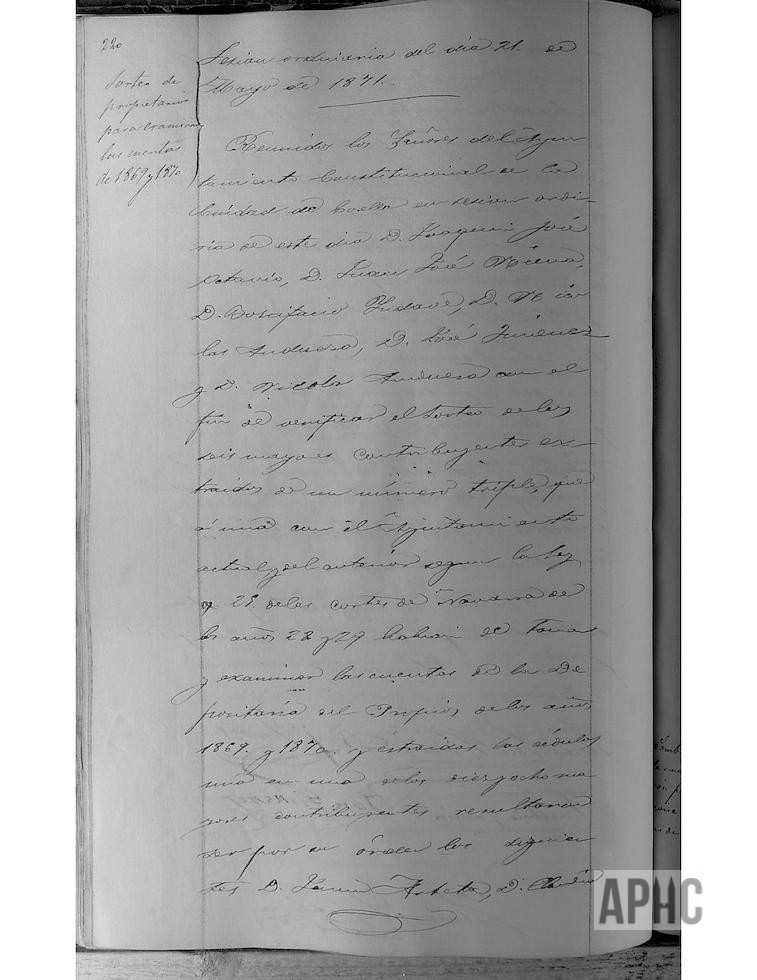 220
Sorteo de
propietarios
para examinar
las cuentas
de 1869 y 1870
Sesion ordinaria del dia 21. de
Mayo de 1871.
Reunidos los Señores del Ayun
tamiento Constitucional de la
Ciudad de Coella en sesion ordi-
ria de este dia D. Joaquin José
Octavio, D. Juan José Miena,
D. Bonifacio Yndave, D. Nico
las Andueza, D. José Jimenez
y D. Nicola Andueza con el
fin de verificar el sorteo de los
seis mayores contribuyentes ex-
traidos de un número triple, que
á una con el Ayuntamiento
actual y del anterior segun la Ley
25. de las cortes de Navarra de
los años 28 y 29 habian de tomar
y examinar las cuentas de la De
positaria del Propios de los años
1869. y 1870. y estraidas las cédulas
una en una de los diez y ocho ma
yores contribuyentes resultaron
ser por su órden los siguien
tes D. Arteta, D. Claudio
APHC